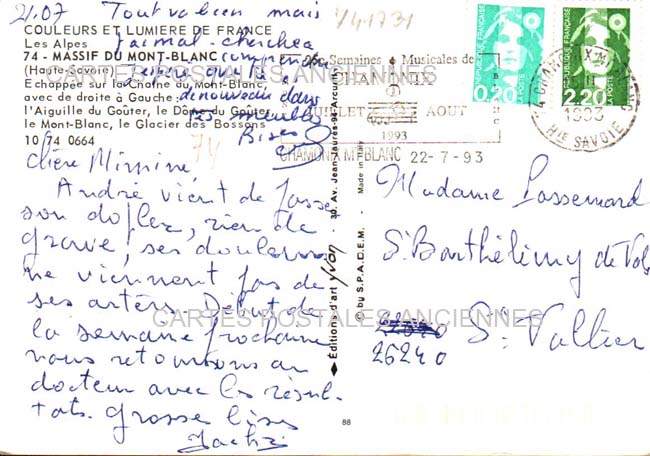 21.07 Tout va bien mais
COULEURS ET LUMIERE DE FRANCE
Les Alpes
j'ai mal
74 - MASSIF DU MONT-BLANC
(Haute-Savoie)
Echappée sur la Chaîne du Mont-Blanc,
avec de droite à Gauche :
de nouveau dans
l'Aiguille du Goûter, le Dôme du Goûter,
le Mont-Blanc, le Glacier des Bossons
Bises
10 74 0664
74
Chère
André vient de passer
son dopler, rien de
grave, ses douleurs
ne viennent pas de
ses artères. Début de
la semaine prochaine
nous retournons au
docteur avec les résul-
tats. Grosse bises
Éditions d'art yvon - 30, Av. Jean-Jaurès-94-Arcueil
© by S.P.A.D.E.M. - Made in Italy
88
Semaines Musicales de
CHAMONIX
JUILLET AOUT
1993
CHAMONIX MT BLANC 22-7-93
REPUBLIQUE FRANCAISE
0,20
LA POSTE
REPUBLIQUE FRANCAISE
2,20
LA POSTE
74 CHAMONIX MT BLANC
1993
HTE SAVOIE
Madame Passemard
St Barthélémy de Vals
St Vallier
26240
CARTES POSTALES ANCIENNES
CARTES POSTALES ANCIENNES